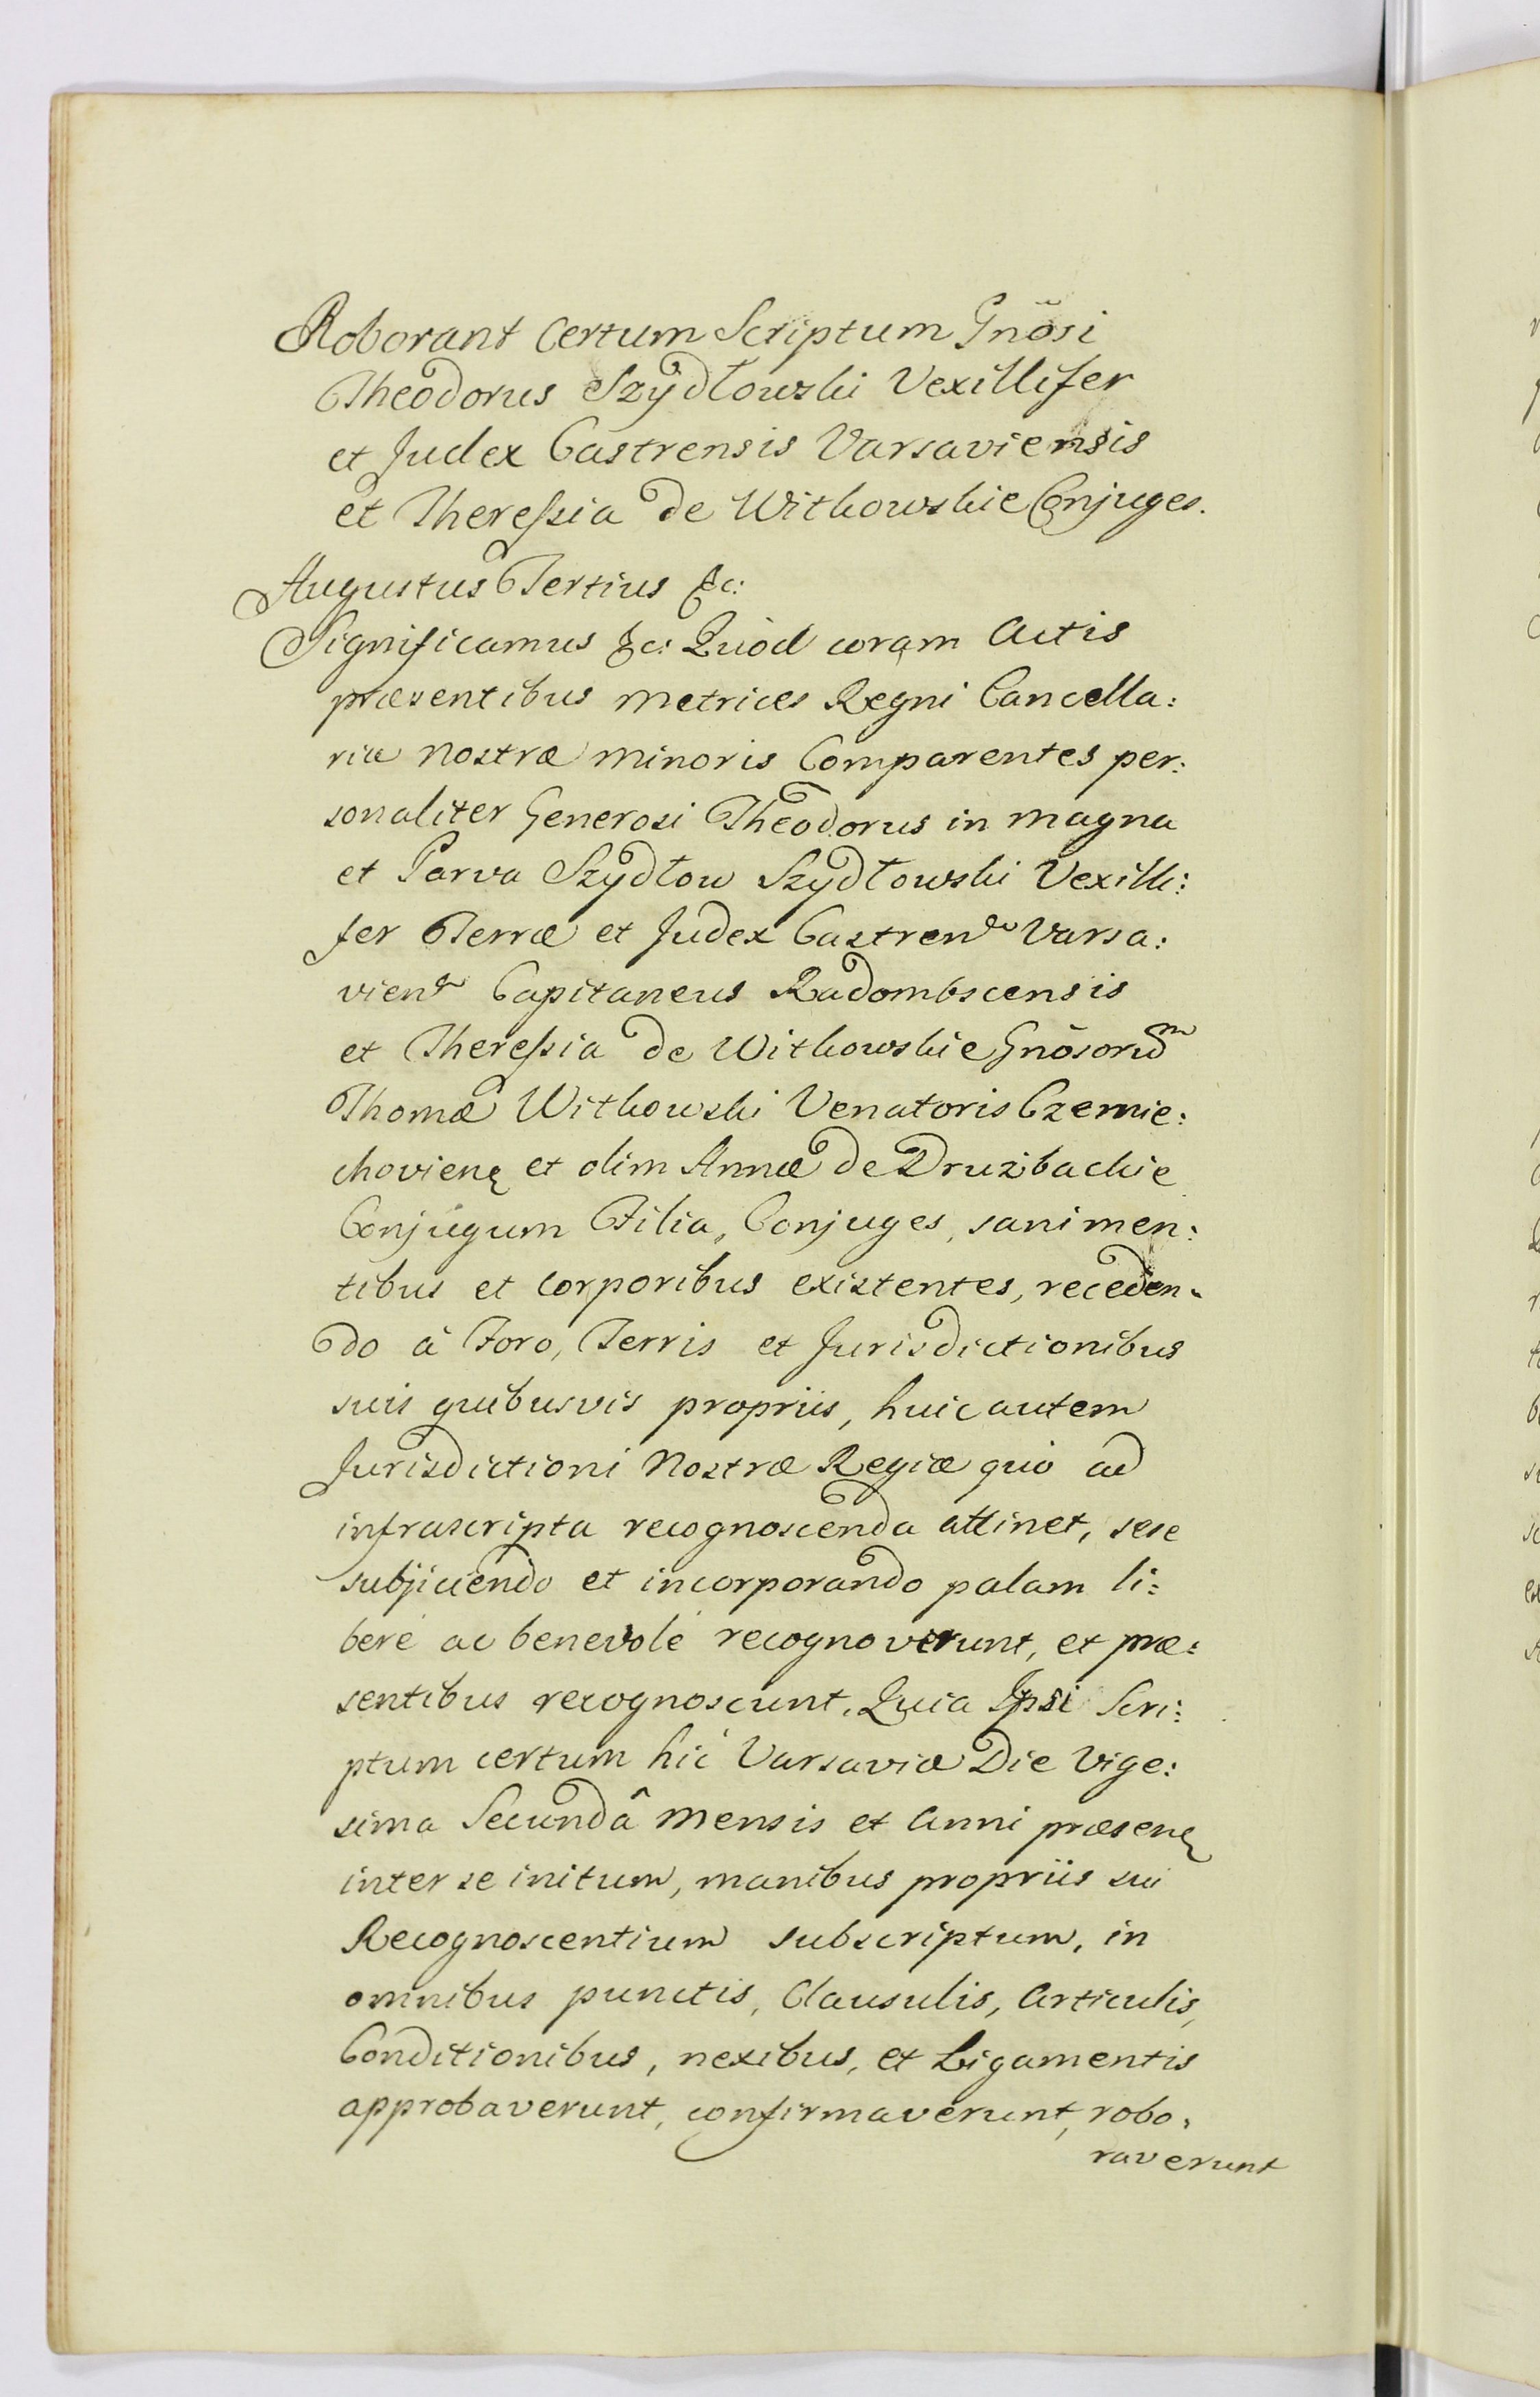 Roborant Certum Scriptum Gnõsi
Theodorus Szydłowski Vexillifer
et Judex Castrensis Varsaviensis
et Theressia de Witkowskie Conjuges.
Augustus Tertius &c:
Significamus &c: Quòd coram Actis
præsentibus Metrices Regni Cancella:
riæ Nostræ Minoris Comparentes per:
sonaliter Generosi Theodorus in Magna
et Parva Szydłow Szydłowski Vexilli:
fer Terræ et Judex Castren Varsa:
vien Capitaneus Radombscensis
et Theressia de Witkowskie Gnõsorum
Thomæ Witkowski Venatoris Czernie:
choviens et olim Annæ de Druzbackie
Conjugum Filia, Conjuges, sani men:
tibus et Corporibus existentes, receden:
do à Foro, Terris et Jurisdictionibus
suis quibusvis propriis, huic autem
Jurisdictioni Nostræ Regiæ quò ad
infrascripta recognoscenda attinet, sese
subjiciendo et incorporando palam li:
berè ac benevolè recognoverunt, et præ:
sentibus recognoscunt, Quia Ipsi Scri:
ptum certum hic Varsaviæ Die Vige:
sima Secundâ Mensis et Anni præsen
inter se initum, manibus propriis sui
Recognoscentium subscriptum, in
omnibus punctis, Clausulis, Articulis,
Conditionibus, nexibus, et Ligamentis
approbaverunt, confirmaverunt, robo:
raverunt